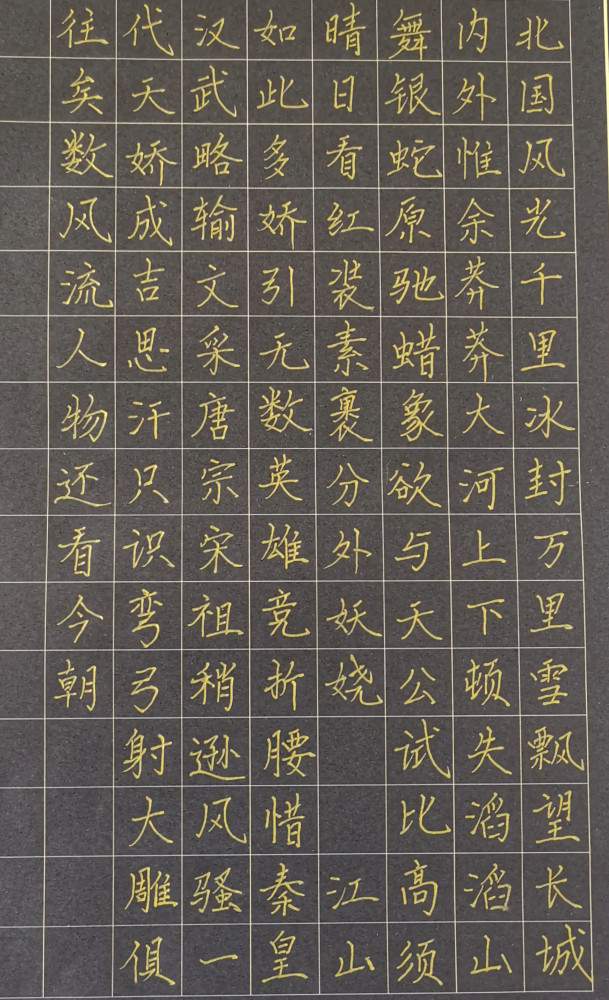 北国风光千里冰封万里雪飘望长城
内外惟余莽莽大河上下顿失滔滔山
舞银蛇原驰蜡象欲与天公试比高须
晴日看红装素裹分外妖娆 江山
如此多娇引无数英雄竞折腰惜秦皇
汉武略输文采唐宗宋祖稍逊风骚一
代天娇成吉思汗只识弯弓射大雕俱
往矣数风流人物还看今朝